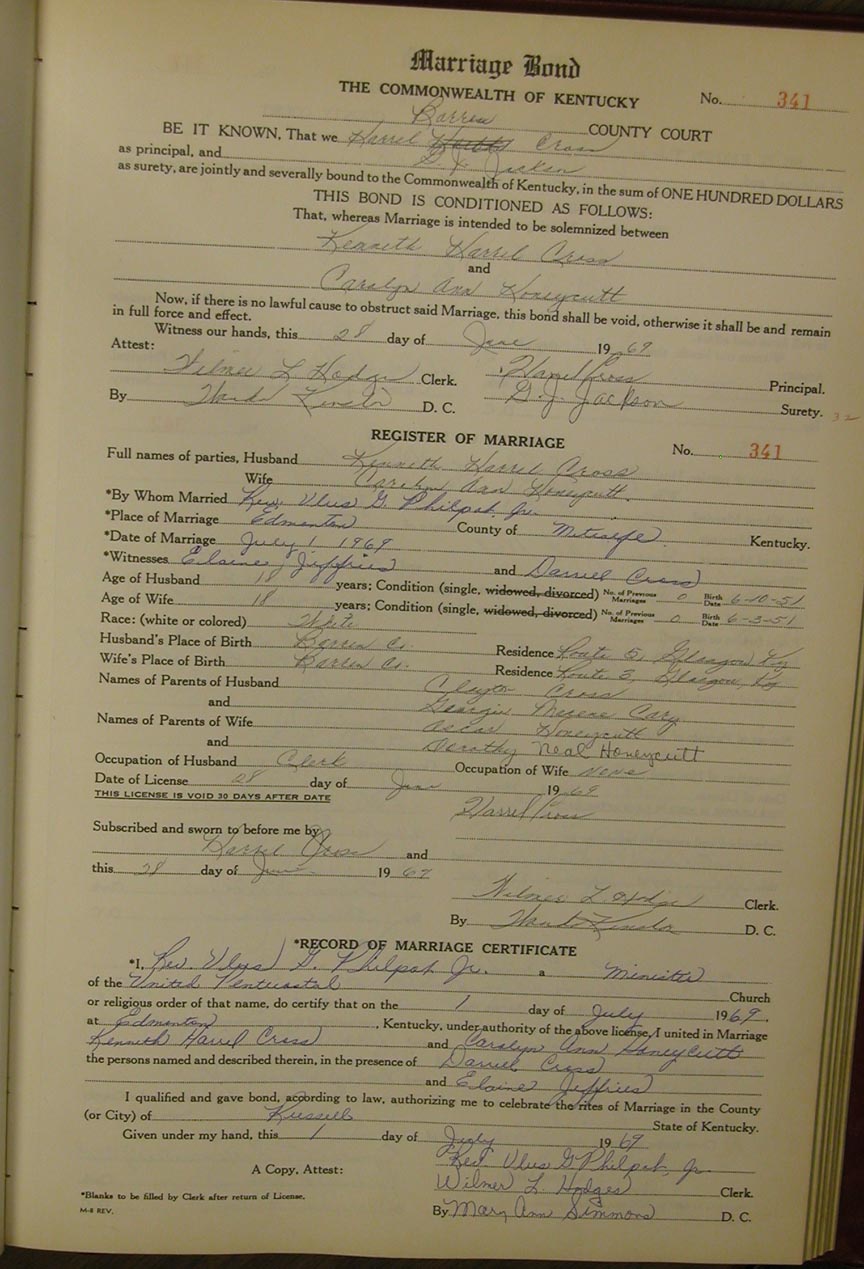 Marriage Bond
THE COMMONWEALTH OF KENTUCKY No. 341
Barren COUNTY COURT
BE IT KNOWN, That we Harrel Cross
as principal, and G. J. Jackson
as surety, are jointly and severally bound to the Commonwealth of Kentucky, in the sum of ONE HUNDRED DOLLARS
THIS BOND IS CONDITIONED AS FOLLOWS:
That, whereas Marriage is intended to be solemnized between
Kenneth Harrel Cross
and
Carolyn Ann Honeycutt
Now, if there is no lawful cause to obstruct said Marriage, this bond shall be void, otherwise it shall be and remain
in full force and effect.
Witness our hands, this 28 day of June 1969
Attest:
Wilmer L Hodges Clerk. Harrel Cross Principal.
By D. C. G. J. Jackson Surety. 32
REGISTER OF MARRIAGE No. 341
Full names of parties, Husband Kenneth Harrel Cross
Wife Carolyn Ann Honeycutt
*By Whom Married Rev. Vlus G. Philpot Jr.
*Place of Marriage Edmonton County of Metcalfe Kentucky.
*Date of Marriage July 1 1969
*Witnesses Elaine Jeffries and Darrel Cross
Age of Husband 18 years; Condition (single, widowed, divorced) No. of Previous Marriages 0 Birth Date 6-10-51
Age of Wife 18 years; Condition (single, widowed, divorced) No. of Previous Marriages 0 Birth Date 6-3-51
Race: (white or colored) White
Husband's Place of Birth Barren Co. Residence Route 5, Glasgow, Ky
Wife's Place of Birth Barren Co. Residence Route 3, Glasgow, Ky
Names of Parents of Husband Clayton Cross
and Georgia Cary
Names of Parents of Wife Oscar Honeycutt
and Dorothy Neal Honeycutt
Occupation of Husband Clerk Occupation of Wife None
Date of License 28 day of June 1969
THIS LICENSE IS VOID 30 DAYS AFTER DATE
Harrel Cross
Subscribed and sworn to before me by
Harrel Cross and
this 28 day of June 1969
Wilmer L. Hodges Clerk.
By D. C.
*RECORD OF MARRIAGE CERTIFICATE
*I, Rev. Vlus G. Philpot Jr. a Minister
of the United Pentecostal Church
or religious order of that name, do certify that on the 1 day of July 1969.
at Edmonton, Kentucky, under authority of the above license, I united in Marriage
Kenneth Harrel Cross and Carolyn Ann Honeycutt
the persons named and described therein, in the presence of Darrel Cross
and Elaine Jeffries
I qualified and gave bond, according to law, authorizing me to celebrate the rites of Marriage in the County
(or City) of Russell State of Kentucky.
Given under my hand, this 1 day of July 1969
Rev. Vlus G Philpot, Jr.
A Copy, Attest: Wilmer L. Hodges Clerk.
*Blanks to be filled by Clerk after return of License.
M-8 REV. By Mary Ann Simmons D. C.